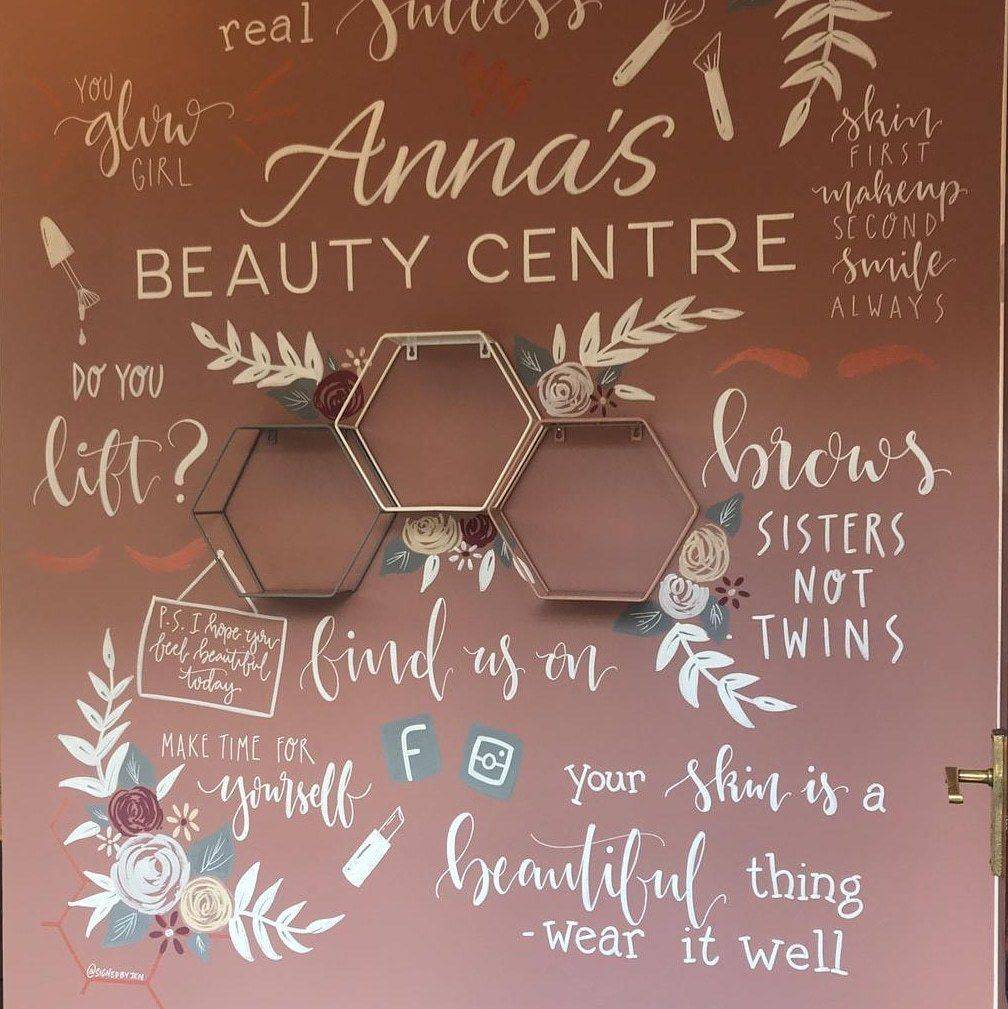 real success
YOU
glow
GIRL
Anna's
BEAUTY CENTRE
skin
FIRST
makeup
SECOND
smile
ALWAYS
DO YOU
lift?
brows
SISTERS
NOT
TWINS
P.S. I hope you
feel beautiful
today
find us on
f
MAKE TIME FOR
yourself
your skin is a
beautiful thing
-wear it well
@SIGNEDBYJEN